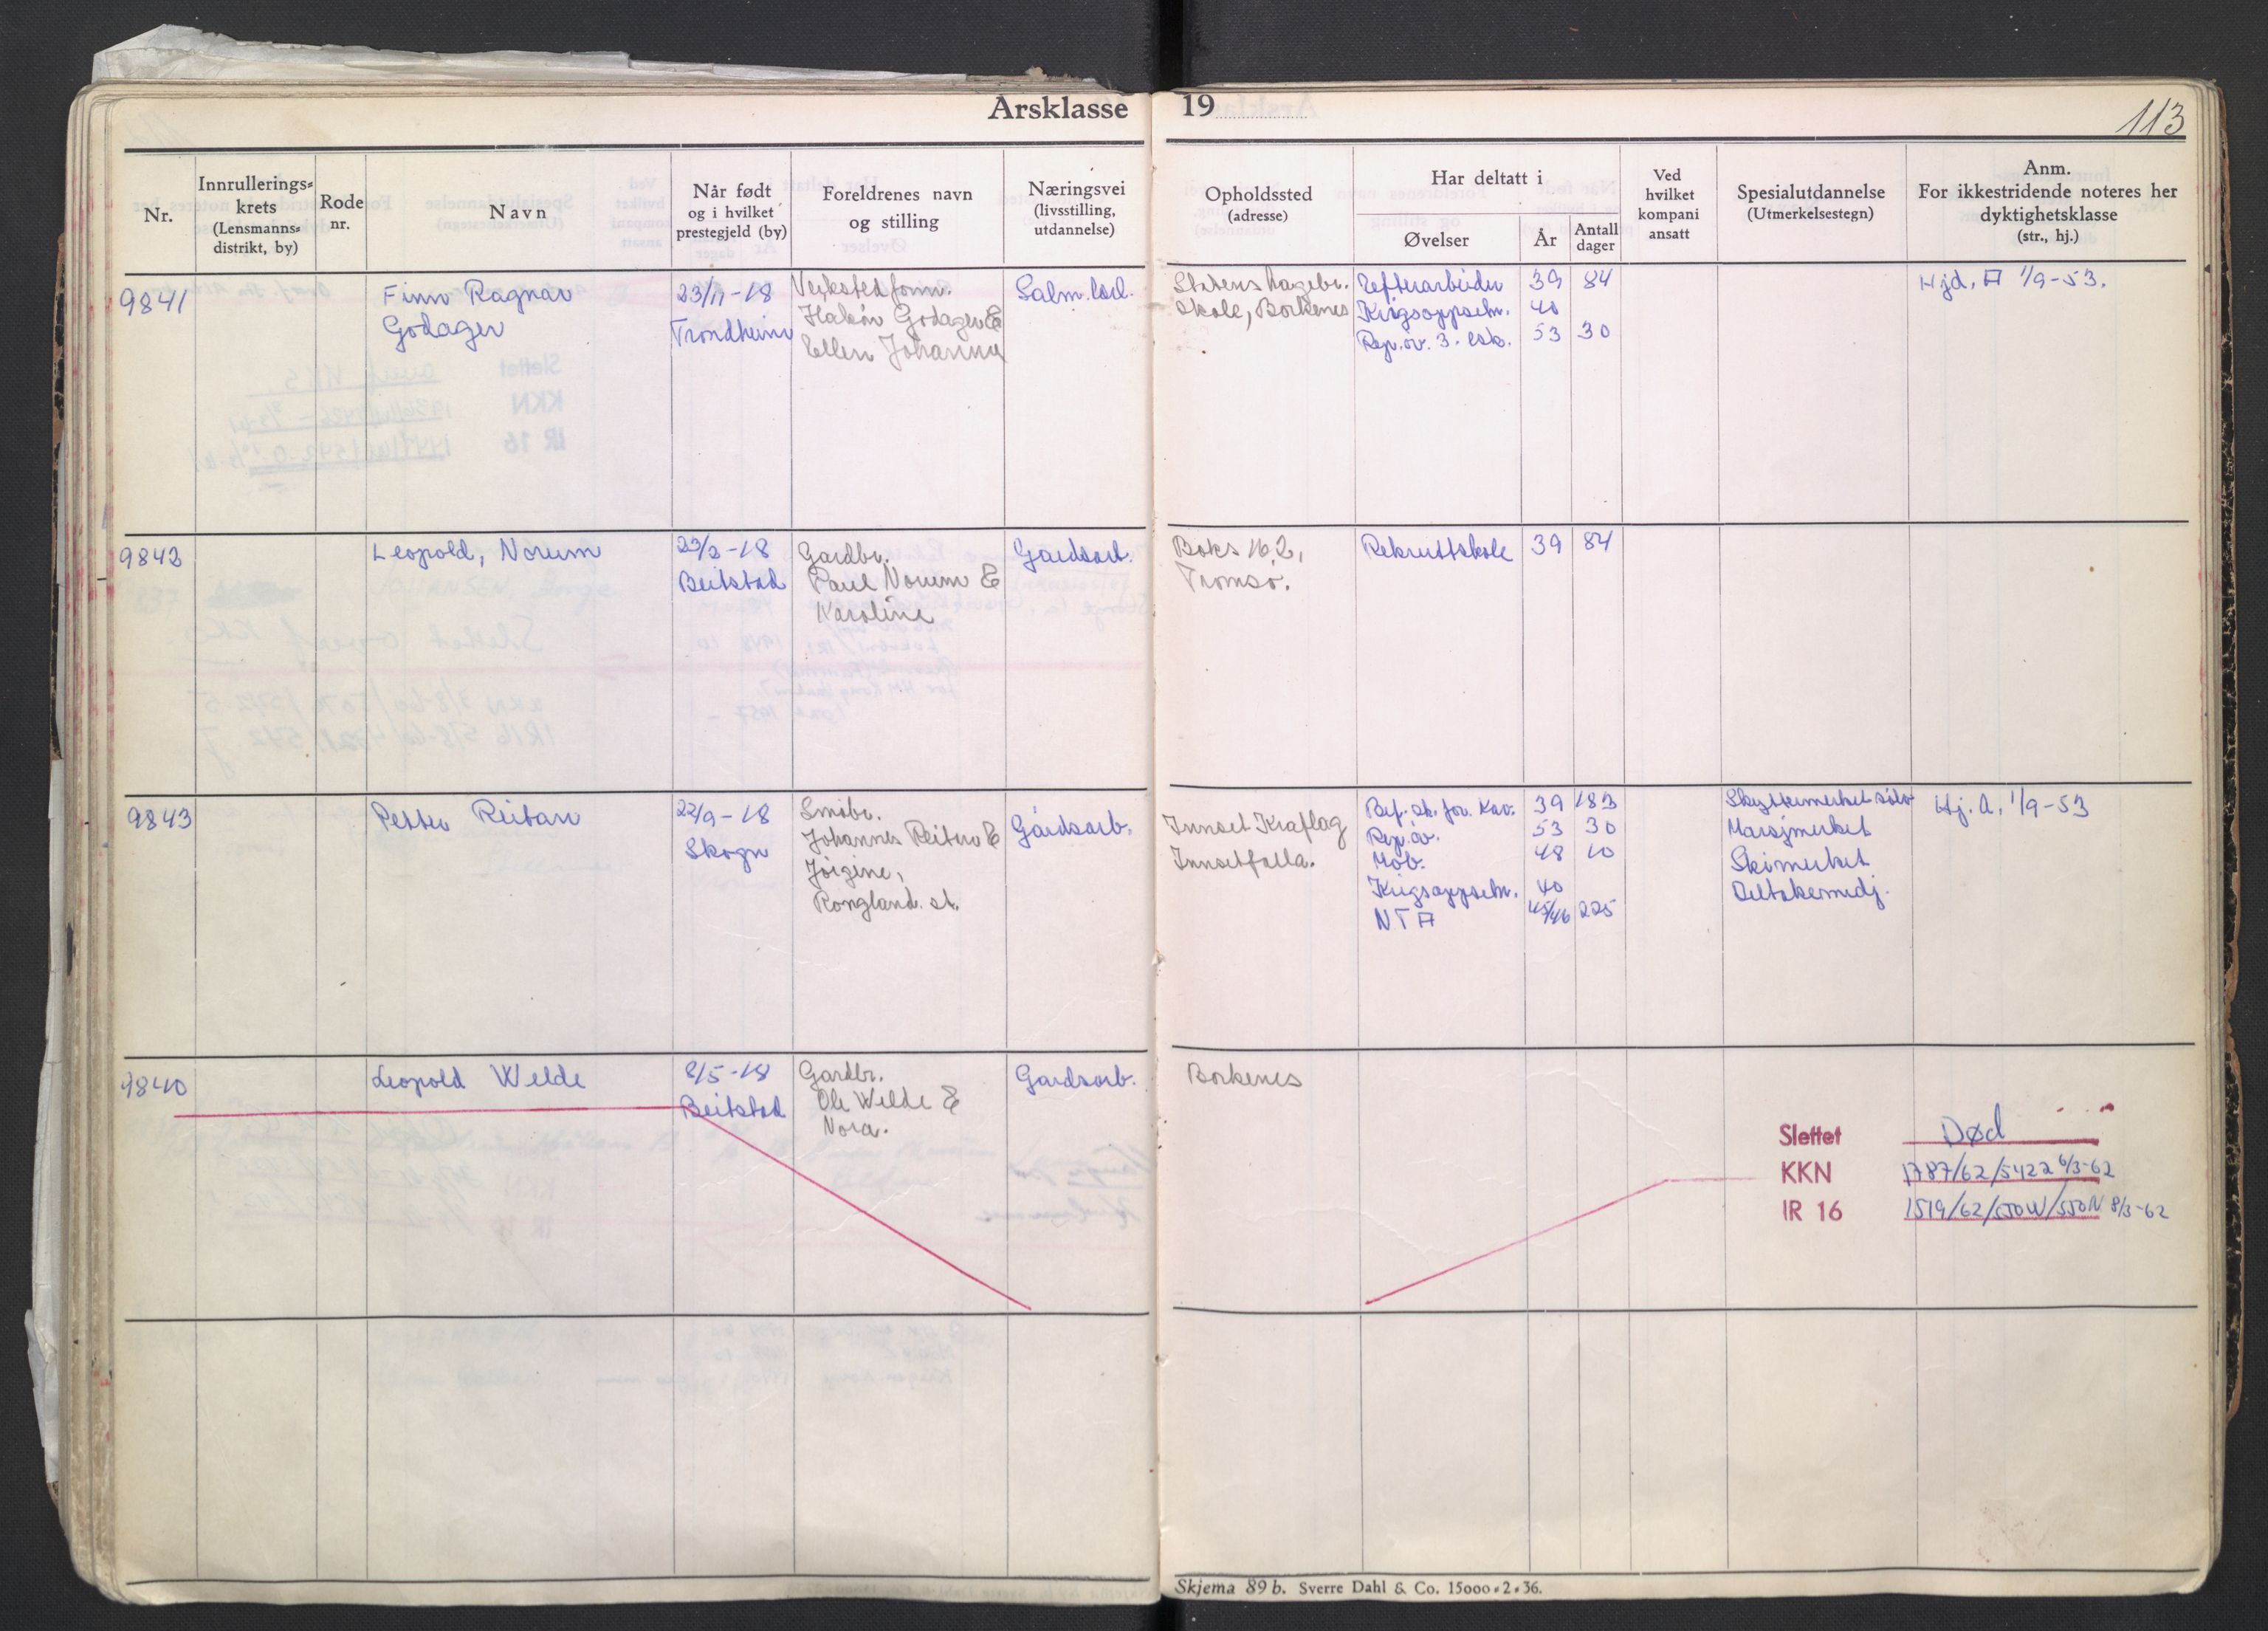 Årsklasse 19
113
Nr.
Innrullerings-
krets
(Lensmanns-
distrikt, by)
Rode
nr.
Navn
Når født
og i hvilket
prestegjeld (by)
Foreldrenes navn
og stilling
Næringsvei
(livsstilling,
utdannelse)
Opholdssted
(adresse)
Har deltatt i
Øvelser
År
Antall
dager
Ved
hvilket
kompani
ansatt
Spesialutdannelse
(Utmerkelsestegn)
Anm.
For ikkestridende noteres her
dyktighetsklasse
(str., hj.)
9841
Finn Ragnar
Godager
23/11-18
Trondheim
Verkstedform.
Hakon Godager &
Ellen Johanna
Salm.
Statens hagebr.
skole, Borkenes
39 84
Krigsoppsetn. 40
Rep.øv. 3. esk. 53 30
Hjd. A 1/9-53.
9842
Leopold, Norum
Beitstad
Gardbr.
Paul Norum &
Karoline
Gardsarb.
Boks 162,
Tromsø.
Rekruttskole 39 84
9843
Petter Reitan
22/9-18
Skogn
Småbr.
Johannes Reitan &
Jørgine,
Rongland. st.
Gårdsarb.
Innset Kraflag
Innsetfalla.
Bef. sk. for Kav. 39 183
Rep.øv. 53 30
Mob. 48 10
Krigsoppsetn. 40
NTA 45/46 225
Skyttermerket sølv
Marsjmerket
Skimerket
Deltakermedj.
Hj. A. 1/9-53
9840
Leopold Welde
8/5-18
Beitstad
Gardbr.
Ole Welde &
Nora.
Gardsarb.
Borkenes
Slettet Død
KKN 1787/62/5422 6/3-62
IR 16 1519/62/550W/550N 8/3-62
Skjema 89 b. Sverre Dahl & Co. 15000-2-36.